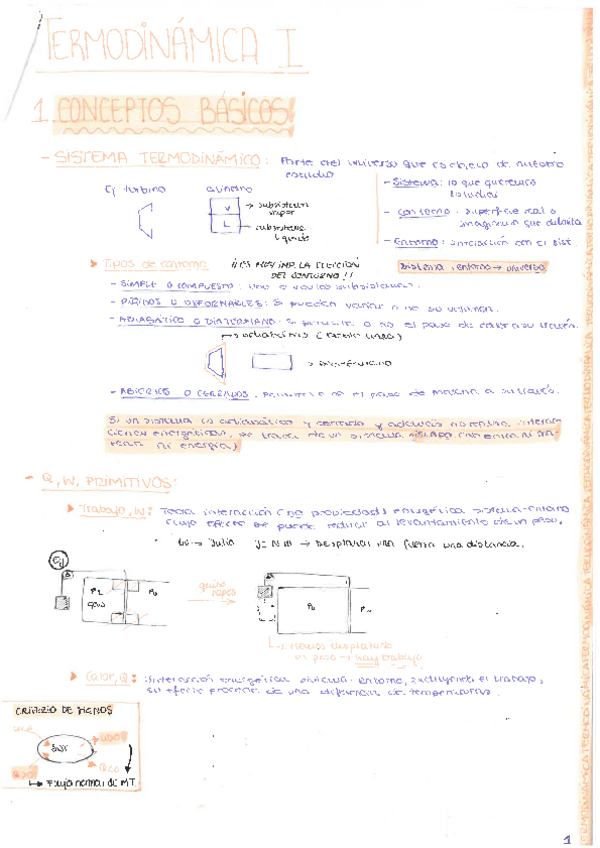 TERMODINÁMICA I
1. CONCEPTOS BÁSICOS
- SISTEMA TERMODINÁMICO: Parte del universo que es objeto de nuestro
estudio
Ej turbina
cilindro
V
L
→ subsistema
vapor
→ subsistema
líquido
- Sistema: lo que queremos
estudiar
- Contorno: superficie real o
imaginaria que delimita
- Entorno: interacción con el sist.
Sistema + entorno → universo
Tipos de contorno
¡¡ES MUY IMP. LA ELECCIÓN
DEL CONTORNO!!
- SIMPLE O COMPUESTO: uno o varios subsistemas.
- RÍGIDOS O DEFORMABLES: Si pueden variar o no su volumen.
- ADIABÁTICO O DIATERMANO: Si permite o no el paso de calor a su través.
→ adiabático (doble línea)
→ diatermano
- ABIERTOS O CERRADOS: permiten o no el paso de materia a su través.
Si un sistema es adiabático y cerrado y además no tiene interac
ciones energéticas, se trata de un sistema aislado (no entra ni ma-
teria ni energía)
- Q, W, PRIMITIVOS:
Trabajo, W: Toda interacción (no propiedad) energética sistema-entorno
cuyo efecto se puede reducir al levantamiento de un peso.
W → Julio
J = N·m → Desplazar una fuerza una distancia.
P1
gas
P0
quito
topes
P0
→ Hemos desplazado
un peso → hay trabajo
Calor, Q: Interacción energética sistema-entorno, excluyendo el trabajo,
su efecto procede de una diferencia de temperaturas.
CRITERIO DE SIGNOS
W<0
W>0
Sist
Q>0
Q<0
→ Flujo normal de MT.
1